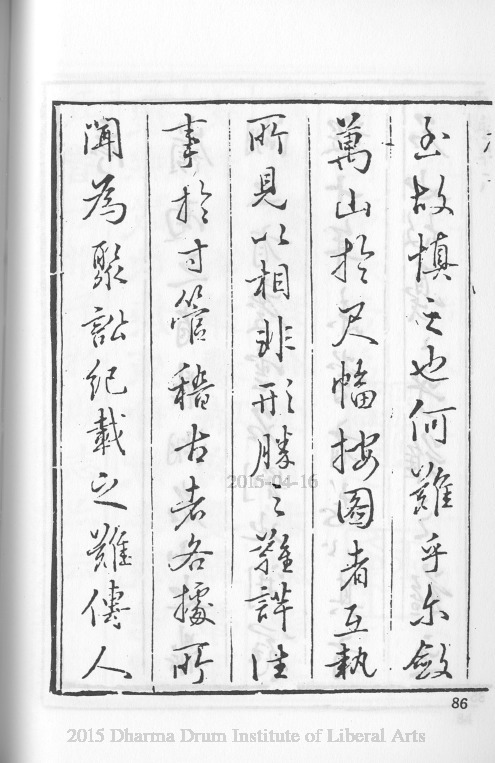 至故慎之也何難乎尔斂
萬山於尺幅按圖者互執
所見以相非形勝之難詳往
事於寸管稽古者各據所
聞為聚訟紀載之難傳人
86
2015-04-16
2015 Dharma Drum Institute of Liberal Arts